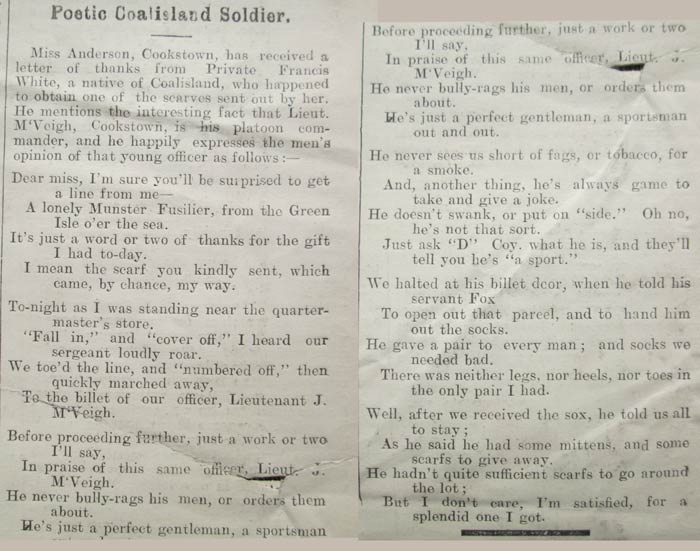 Poetic Coalisland Soldier.
Miss Anderson, Cookstown, has received a
letter of thanks from Private Francis
White, a native of Coalisland, who happened
to obtain one of the scarves sent out by her.
He mentions the interesting fact that Lieut.
M'Veigh, Cookstown, is his platoon com-
mander, and he happily expresses the men's
opinion of that young officer as follows :—
Dear miss, I'm sure you'll be surprised to get
a line from me—
A lonely Munster Fusilier, from the Green
Isle o'er the sea.
It's just a word or two of thanks for the gift
I had to-day.
I mean the scarf you kindly sent, which
came, by chance, my way.
To-night as I was standing near the quarter-
master's store.
"Fall in," and "cover off," I heard our
sergeant loudly roar.
We toe'd the line, and "numbered off," then
quickly marched away,
To the billet of our officer, Lieutenant J.
M'Veigh.
Before proceeding further, just a work or two
I'll say,
In praise of this same officer, Lieut. J.
M'Veigh.
He never bully-rags his men, or orders them
about.
He's just a perfect gentleman, a sportsman
Before proceeding further, just a work or two
I'll say,
In praise of this same officer, Lieut. J.
M'Veigh.
He never bully-rags his men, or orders them
about.
He's just a perfect gentleman, a sportsman
out and out.
He never sees us short of fags, or tobacco, for
a smoke.
And, another thing, he's always game to
take and give a joke.
He doesn't swank, or put on "side." Oh no,
he's not that sort.
Just ask "D" Coy. what he is, and they'll
tell you he's "a sport."
We halted at his billet door, when he told his
servant Fox
To open out that parcel, and to hand him
out the socks.
He gave a pair to every man ; and socks we
needed bad.
There was neither legs, nor heels, nor toes in
the only pair I had.
Well, after we received the sox, he told us all
to stay ;
As he said he had some mittens, and some
scarfs to give away.
He hadn't quite sufficient scarfs to go around
the lot ;
But I don't care, I'm satisfied, for a
splendid one I got.